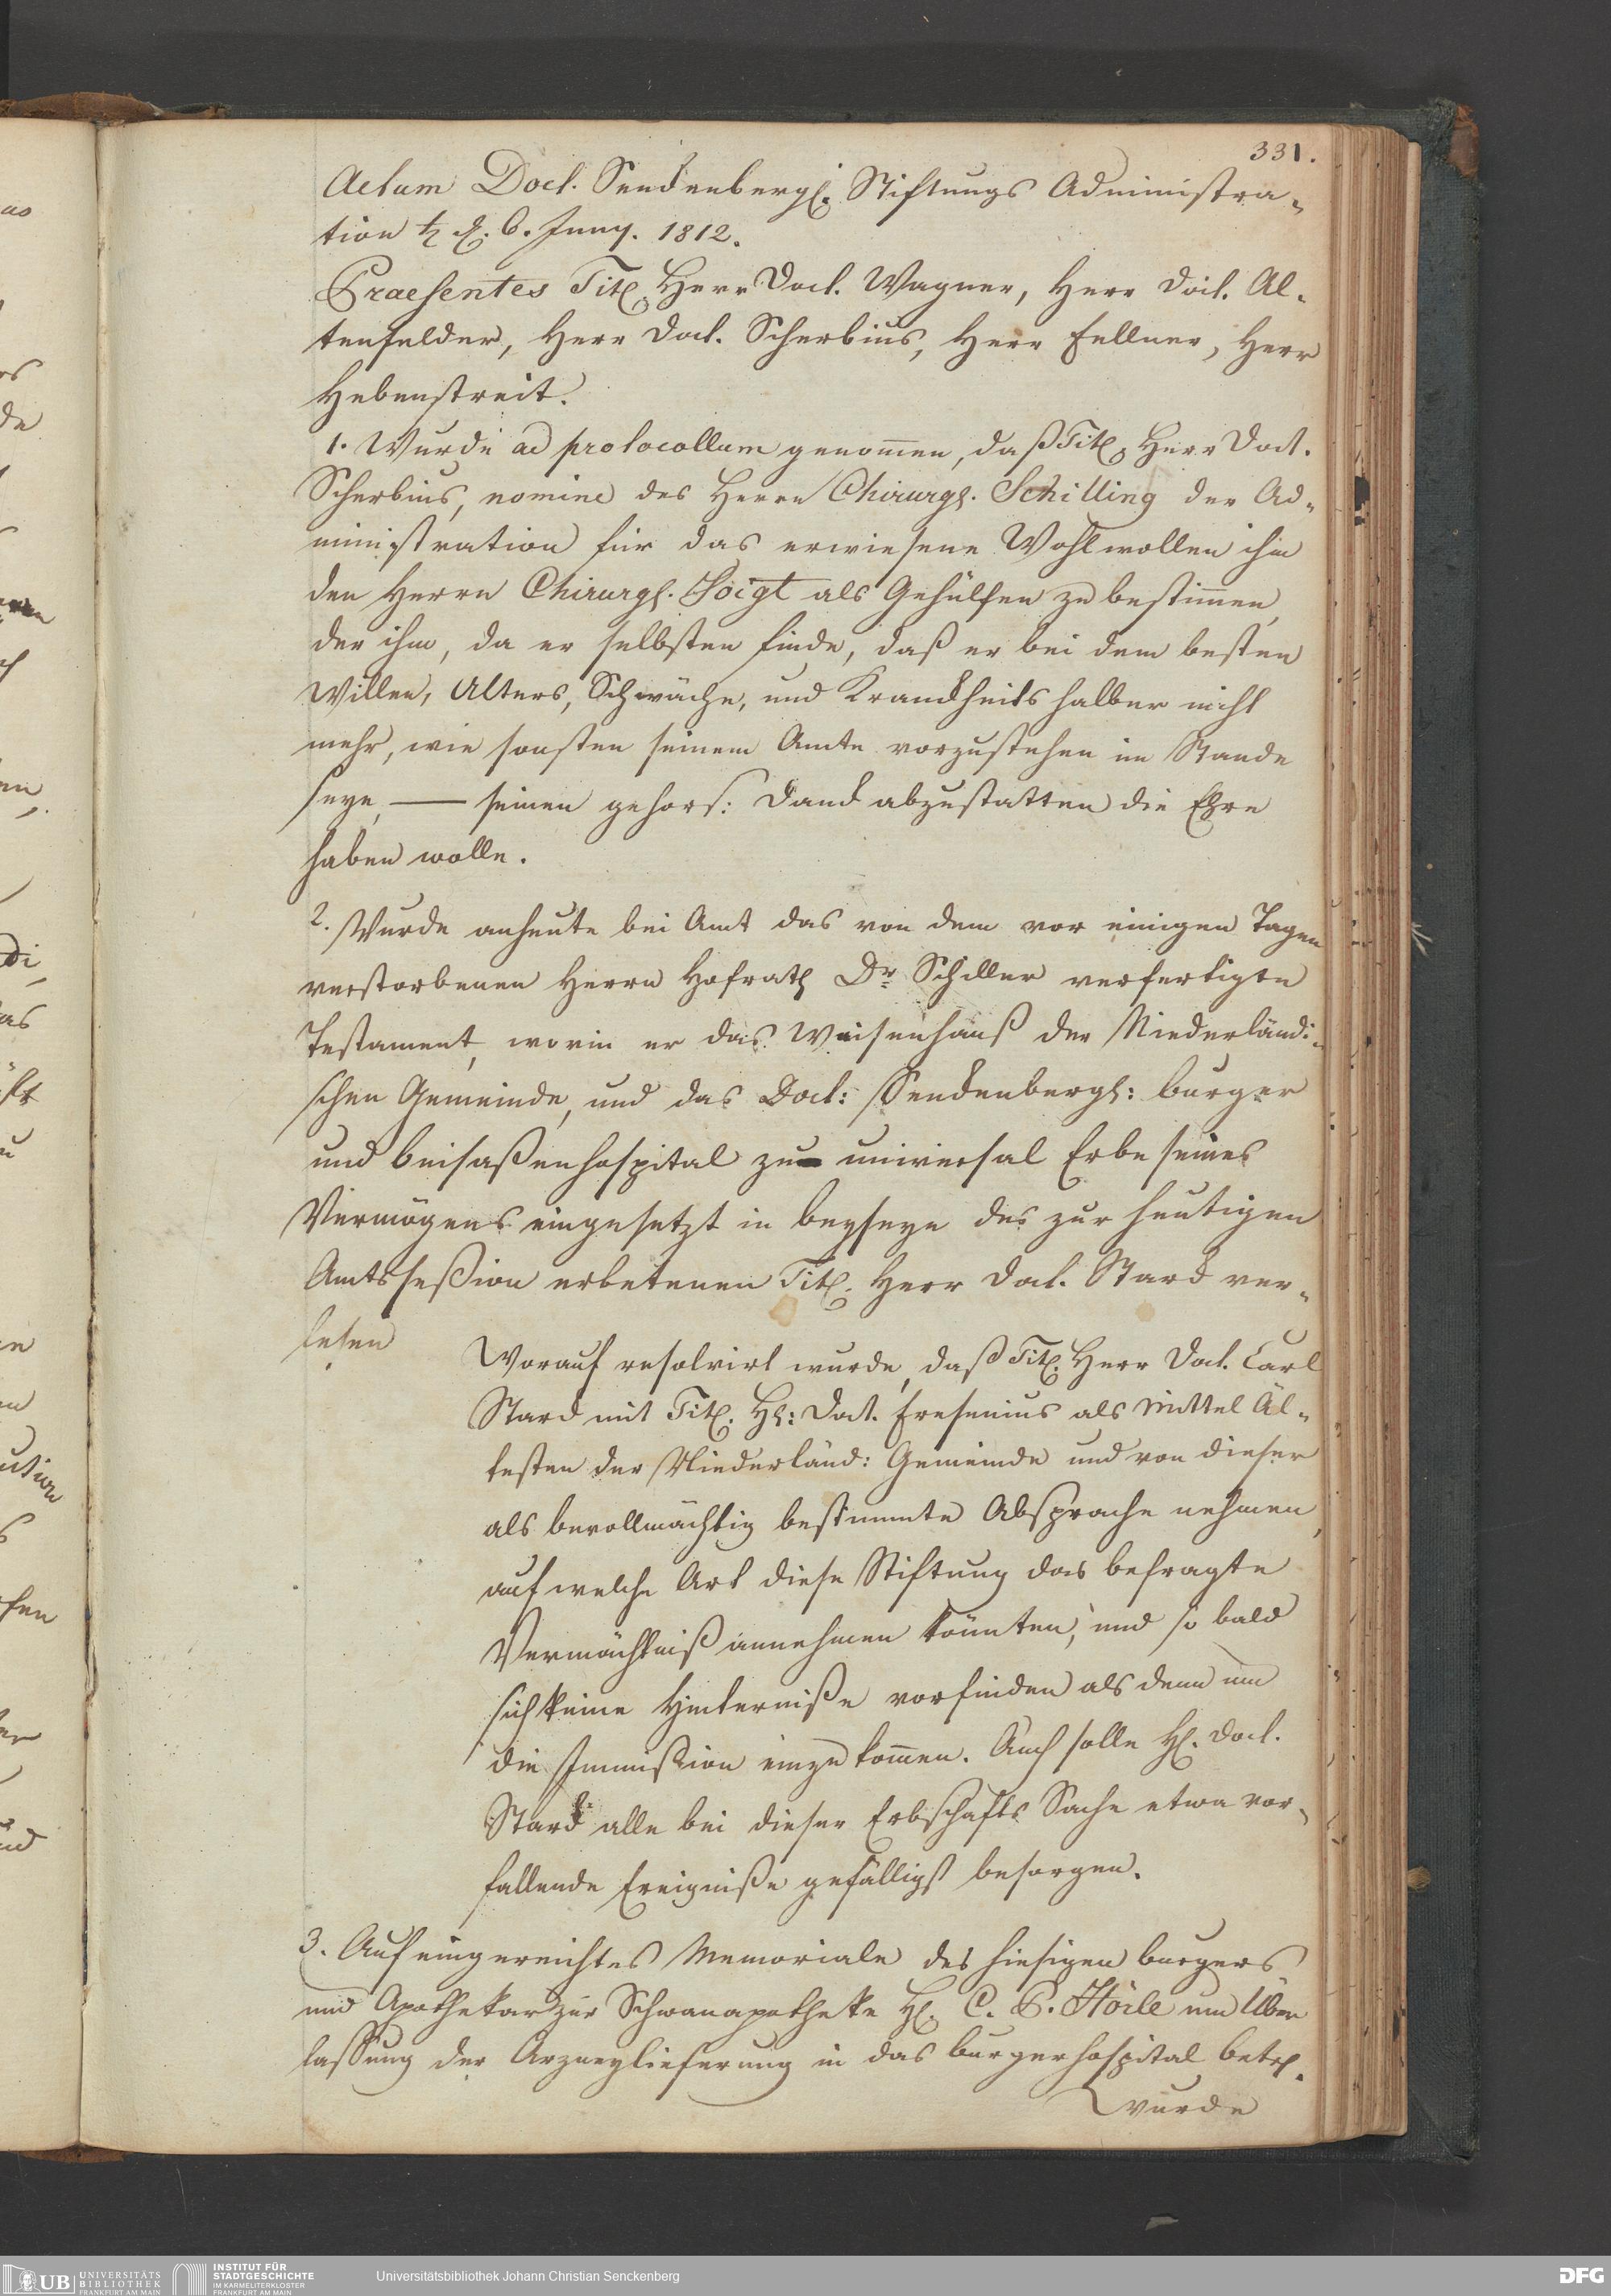 331.
Actum Doct. Senckenbergl. Stiftungs Administra-
tion ♄ d. 6. Juny. 1812.
Praesentes Titl. Herr Doct. Wagner, Herr Doct. Al-
tenfelder, Herr Doct. Scherbius, Herr Fellner, Herr
Hebenstreit.
1. Wurde ad protocollum genom̄en, daß Titl. Herr Doct.
Scherbius, nomine des Herrn Chirurgs. Schilling der Ad-
ministration für das erwiesene Wohlwollen ihm
den Herrn Chirurgs. Voigt als Gehülfen zu bestim̄en,
der ihm, da er selbsten finde, daß er bei dem besten
Willen, Alters, Schwäche, und Kranckheits halber nicht
mehr, wie sonsten seinem Amte vorzustehen im Stande
seye, — seinen gehors: Danck abzustatten die Ehre
haben wolle.
2. Wurde anheute bei Amt das von dem vor einigen Tagen
verstorbenen Herrn Hofrath Dr. Schiller verfertigte
Testament, worin er das Waisenhauß der Niederländi-
schen Gemeinde, und das Doct: Senckenbergs: burger
und beisaßenhospital zu universal Erbe seines
Vermögens eingesetzt in beyseye des zur heutigen
Amtsseßion erbetenen Titl. Herr Doct. Starck ver-
lesen
Worauf resolvirt wurde, daß Titl. Herr Doct. Carl
Starck mit Titl. Hs: Doct. Fresenius als Mittel Äl-
testen der Niederländ: Gemeinde und von dieser
als bevollmächtig bestimmte Absprache nehmen,
auf welche Art diese Stiftung das befragte
Vermächtniß annehmen könnten, und so bald
sich keine Hinterniße vorfinden als denn um
die Immißion einzukom̄en. Auch solle H. Doct.
Starck alle bei dieser Erbschafts Sache etwa vor-
fallende Ereigniße gefälligst besorgen.
3. Auf eingereichtes Memoriale des hiesigen burgers
und Apothekar zur Schwanapotheke H. C. P. Hörle um Über
lassung der Arzneylieferung in das burgerhospital betr.
wurde
UB UNIVERSITÄTS BIBLIOTHEK FRANKFURT AM MAIN
INSTITUT FÜR STADTGESCHICHTE IM KARMELITERKLOSTER FRANKFURT AM MAIN
Universitätsbibliothek Johann Christian Senckenberg
DFG